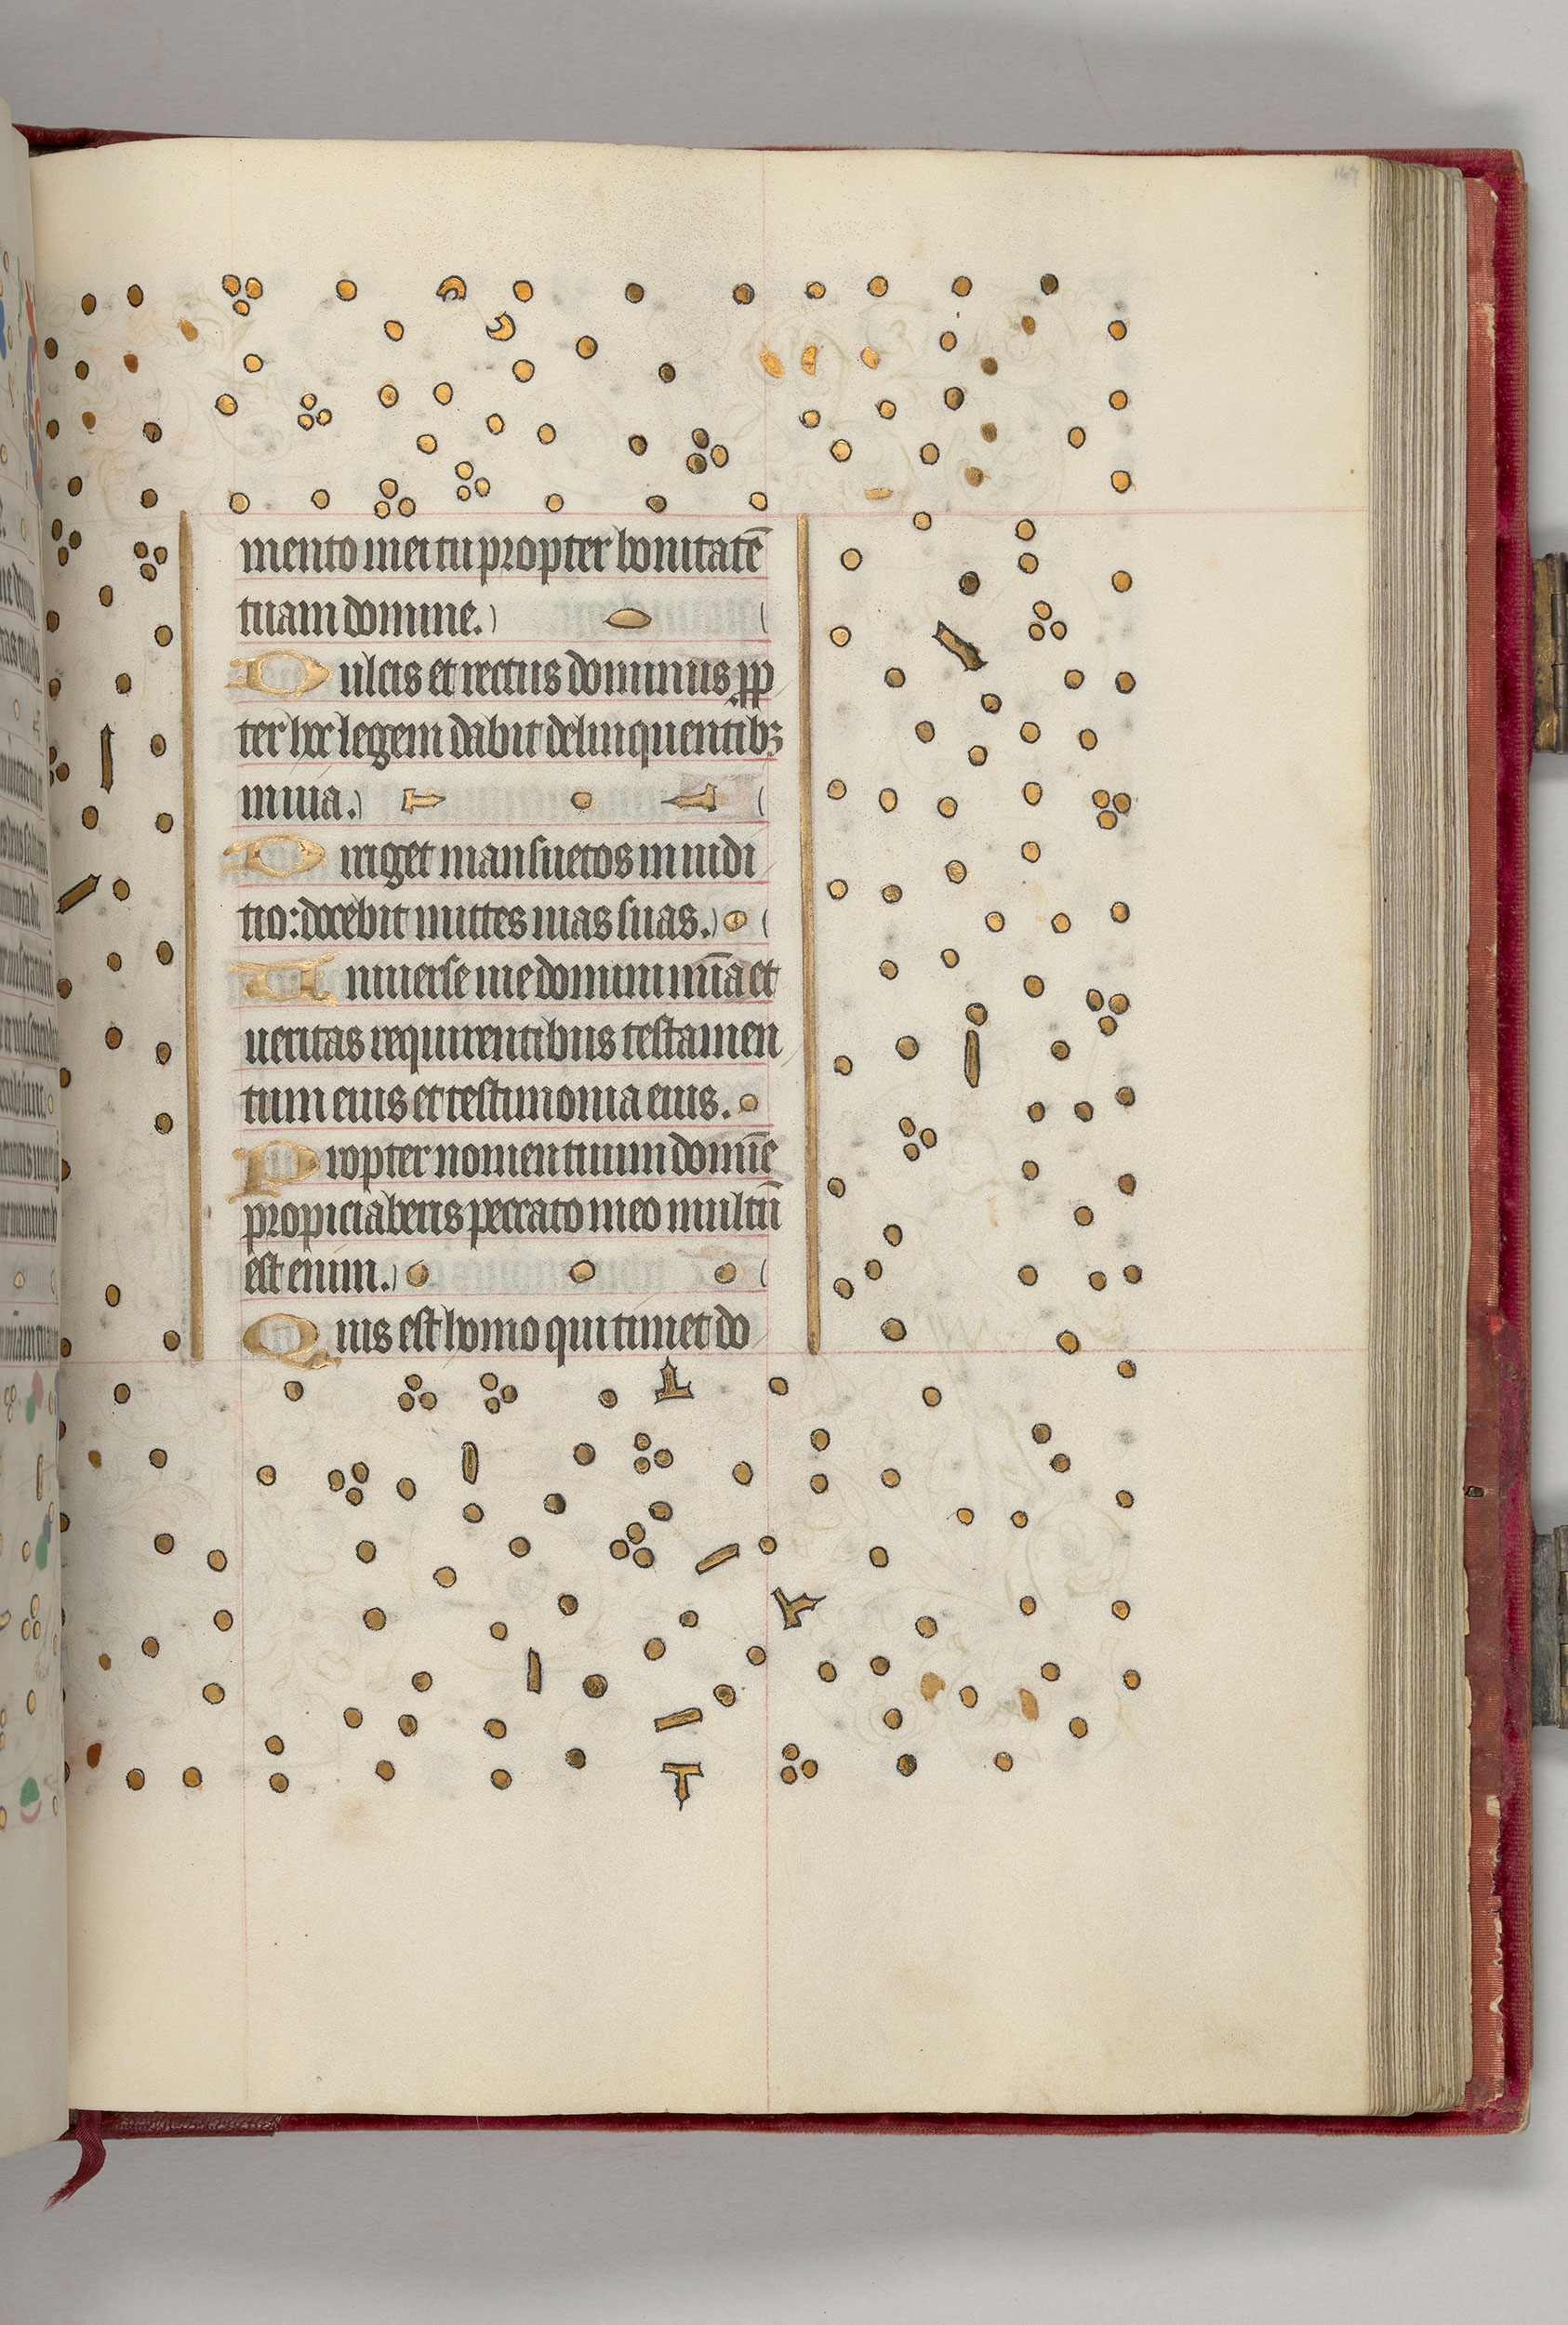 mento mei tu propter bonitatē
tuam domine.
Dulcis et rectus dominus pp
ter hoc legem dabit delinquentibꝫ
in uia.
Diriget mansuetos in iudi
tio: docebit mittes uias suas.
Uniuerse uie domini mīa et
ueritas requirentibus testamen
tum eius et testimonia eius.
Propter nomen tuum domīe
propiciaberis peccato meo multū
est enim.
Quis est homo qui timet do